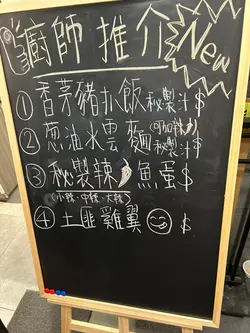 廚師推介 New
① 香茅豬扒飯 秘製汁 $
② 葱油水雲麵 (可加辣) 秘製汁 $
③ 秘製辣魚蛋 $
(小辣、中辣、大辣)
④ 土匪雞翼 $